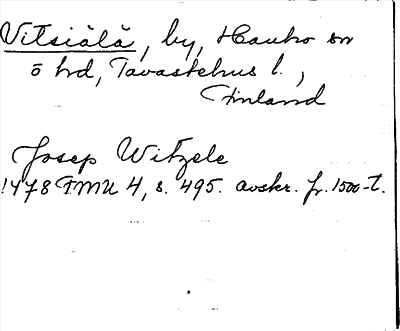 Vitsiälä, by, Hauho sn
ö hd, Tavastehus l.,
Finland
Josep Witzele
1478 FMU 4, s. 495. avskr. fr. 1500-t.